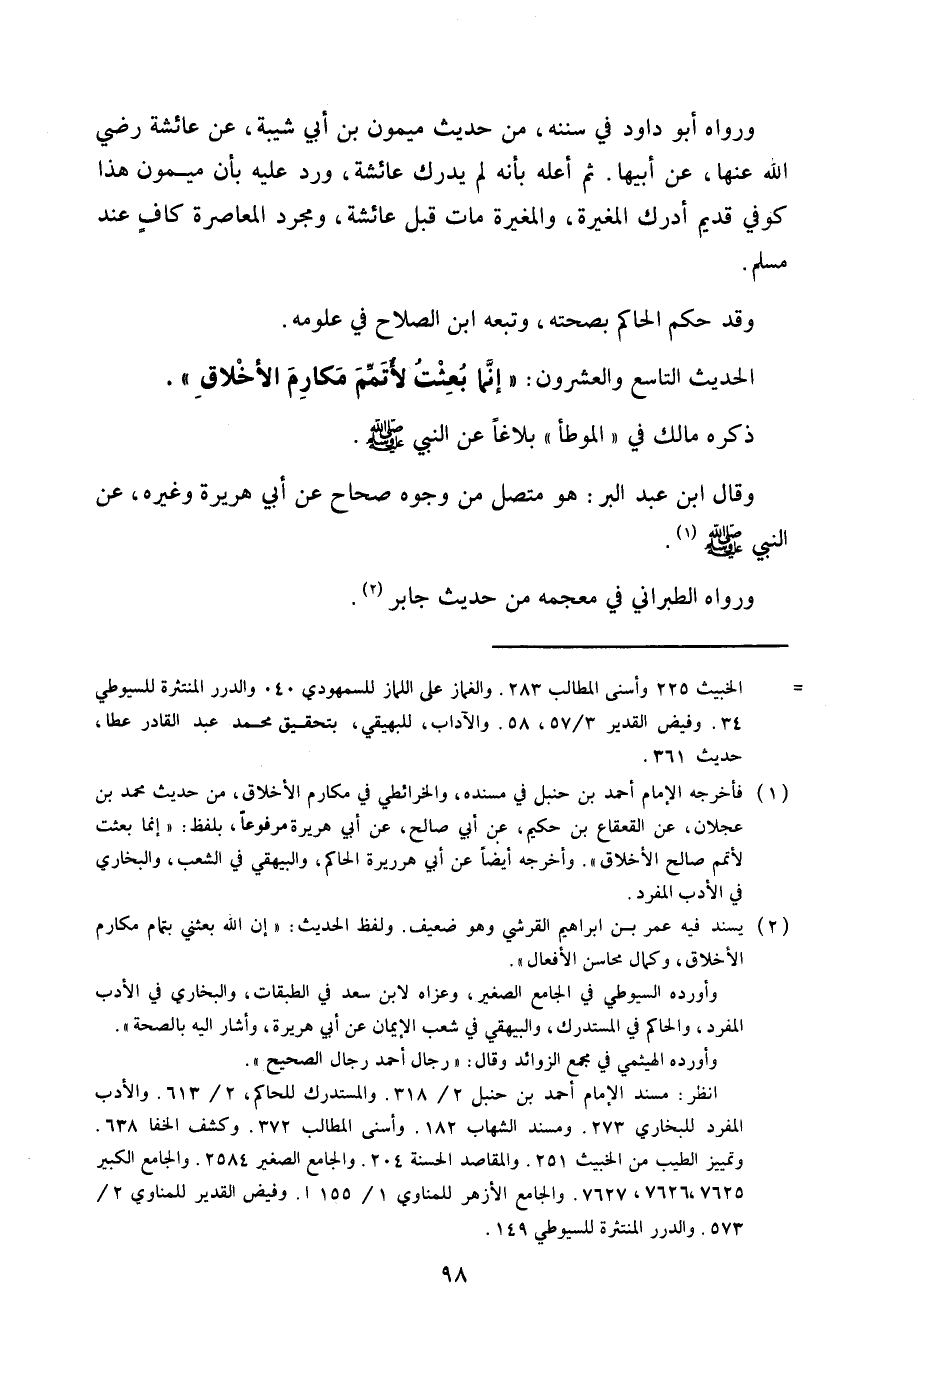 ورواه أبو داود في سننه، من حديث ميمون بن أبي شيبة، عن عائشة رضي
الله عنها، عن أبيها. ثم أعله بأنه لم يدرك عائشة، ورد عليه بأن ميمون هذا
كوفي قديم أدرك المغيرة، والمغيرة مات قبل عائشة، ومجرد المعاصرة كافٍ عند
مسلم.
وقد حكم الحاكم بصحته، وتبعه ابن الصلاح في علومه.
الحديث التاسع والعشرون: « إنَّما بُعِثْتُ لأُتَمِّمَ مَكارِمَ الأخْلاقِ ».
ذكره مالك في « الموطأ » بلاغاً عن النبي ﷺ.
وقال ابن عبد البر: هو متصل من وجوه صحاح عن أبي هريرة وغيره، عن
النبي ﷺ (١).
ورواه الطبراني في معجمه من حديث جابر (٢).
= الخبيث ٢٢٥ وأسنى المطالب ٢٨٣. والغماز على اللماز للسمهودي ٠٤٠ والدرر المنتثرة للسيوطي
٣٤. وفيض القدير ٥٧/٣، ٥٨. والآداب، للبهيقي، بتحقيق محمد عبد القادر عطا،
حديث ٣٦١.
(١) فأخرجه الإمام أحمد بن حنبل في مسنده، والخرائطي في مكارم الأخلاق، من حديث محمد بن
عجلان، عن القعقاع بن حكيم، عن أبي صالح، عن أبي هريرة مرفوعاً، بلفظ: « إنما بعثت
لأتمم صالح الأخلاق ». وأخرجه أيضاً عن أبي هرريرة الحاكم، والبيهقي في الشعب، والبخاري
في الأدب المفرد.
(٢) يسند فيه عمر بن ابراهيم القرشي وهو ضعيف. ولفظ الحديث: « إن الله بعثني بتمام مكارم
الأخلاق، وكمال محاسن الأفعال ».
وأورده السيوطي في الجامع الصغير، وعزاه لابن سعد في الطبقات، والبخاري في الأدب
المفرد، والحاكم في المستدرك، والبيهقي في شعب الإيمان عن أبي هريرة، وأشار اليه بالصحة ».
وأورده الهيثمي في مجمع الزوائد وقال: « رجال أحمد رجال الصحيح ».
انظر: مسند الإمام أحمد بن حنبل ٢/ ٣١٨. والمستدرك للحاكم، ٢/ ٦١٣. والأدب
المفرد للبخاري ٢٧٣. ومسند الشهاب ١٨٢. وأسنى المطالب ٣٧٢. وكشف الخفا ٦٣٨.
وتمييز الطيب من الخبيث ٢٥١. والمقاصد الحسنة ٢٠٤. والجامع الصغير ٢٥٨٤. والجامع الكبير
٧٦٢٥، ٧٦٢٦، ٧٦٢٧. والجامع الأزهر للمناوي ١/ ١٥٥ ا. وفيض القدير للمناوي ٢/
٥٧٣. والدرر المنتثرة للسيوطي ١٤٩.
٩٨